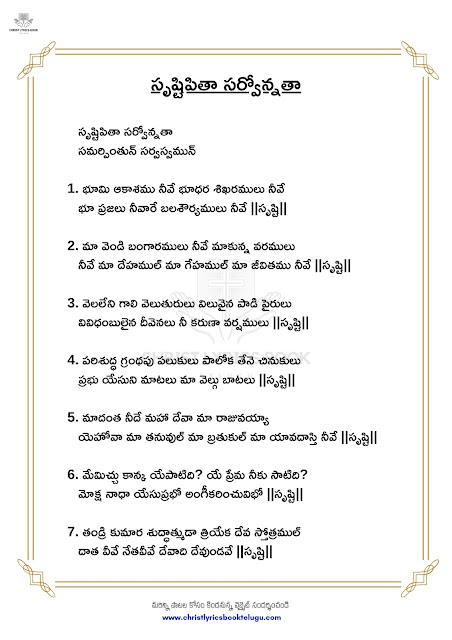 CHRIST LYRICS BOOK
సృష్టిపితా సర్వోన్నతా
సృష్టిపితా సర్వోన్నతా
సమర్పింతున్ సర్వస్వమున్
1. భూమి ఆకాశము నీవే భూధర శిఖరములు నీవే
భూ ప్రజలు నీవారే బలశౌర్యములు నీవే ||సృష్టి||
2. మా వెండి బంగారములు నీవే మాకున్న వరములు
నీవే మా దేహముల్ మా గేహముల్ మా జీవితము నీవే ||సృష్టి||
3. వెలలేని గాలి వెలుతురులు విలువైన పాడి పైరులు
వివిధంబులైన దీవెనలు నీ కరుణా వర్షములు ||సృష్టి||
4. పరిశుద్ధ గ్రంథపు పలుకులు పాలోక తేనె చినుకులు
ప్రభు యేసుని మాటలు మా వెల్గు బాటలు ||సృష్టి||
5. మాదంత నీదే మహా దేవా మా రాజువయ్యా
యెహోవా మా తనువుల్ మా బ్రతుకుల్ మా యావదాస్తి నీవే ||సృష్టి||
6. మేమిచ్చు కాన్క యేపాటిది? యే ప్రేమ నీకు సాటిది?
మోక్ష నాధా యేసుప్రభో అంగీకరించువిభో ||సృష్టి||
7. తండ్రి కుమార శుద్ధాత్ముడా త్రియేక దేవ స్తోత్రముల్
దాత వీవే నేతవీవే దేవాది దేవుండవే ||సృష్టి||
మరిన్ని పాటల కోసం క్రిందనున్న వెబ్సైట్ సందర్శించండి
www.christlyricsbooktelugu.com